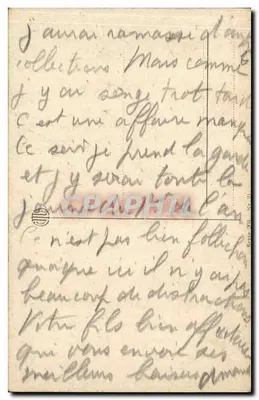 j'aurai ramassé d'amples
collections. Mais comme
j'y ai songé trop tard
c'est une affaire manquée
Ce soir je prend la garde
et j'y serai toute la
journée du 1er de l'an
c'est pas bien follichon
quoique ici il n'y ai pas
beaucoup de distractions
Votre fils bien affectueux
qui vous envoie ses
meilleurs baisers
CPAPHIL